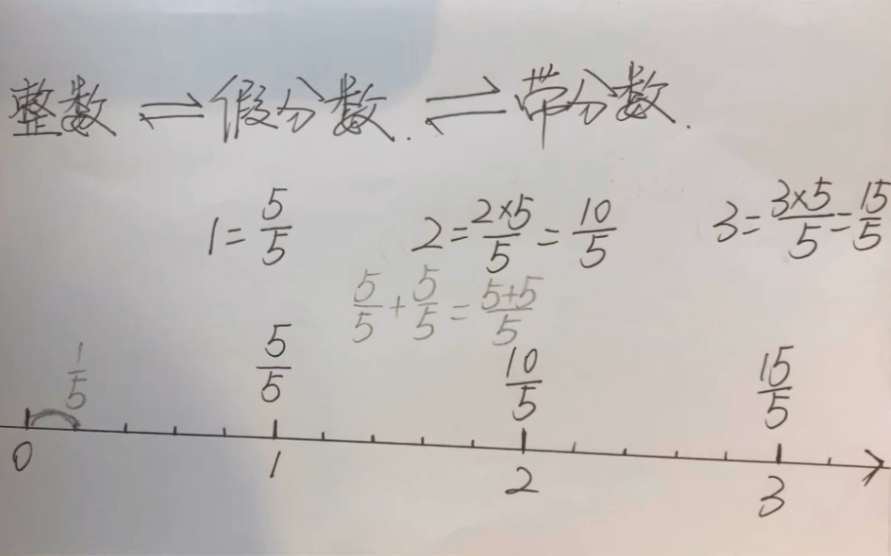 整数 ⇌ 假分数. ⇌ 带分数.
1 = 5/5 2 = 2×5/5 = 10/5 3 = 3×5/5 = 15/5
5/5 + 5/5 = 5+5/5
1/5 5/5 10/5 15/5
0 1 2 3